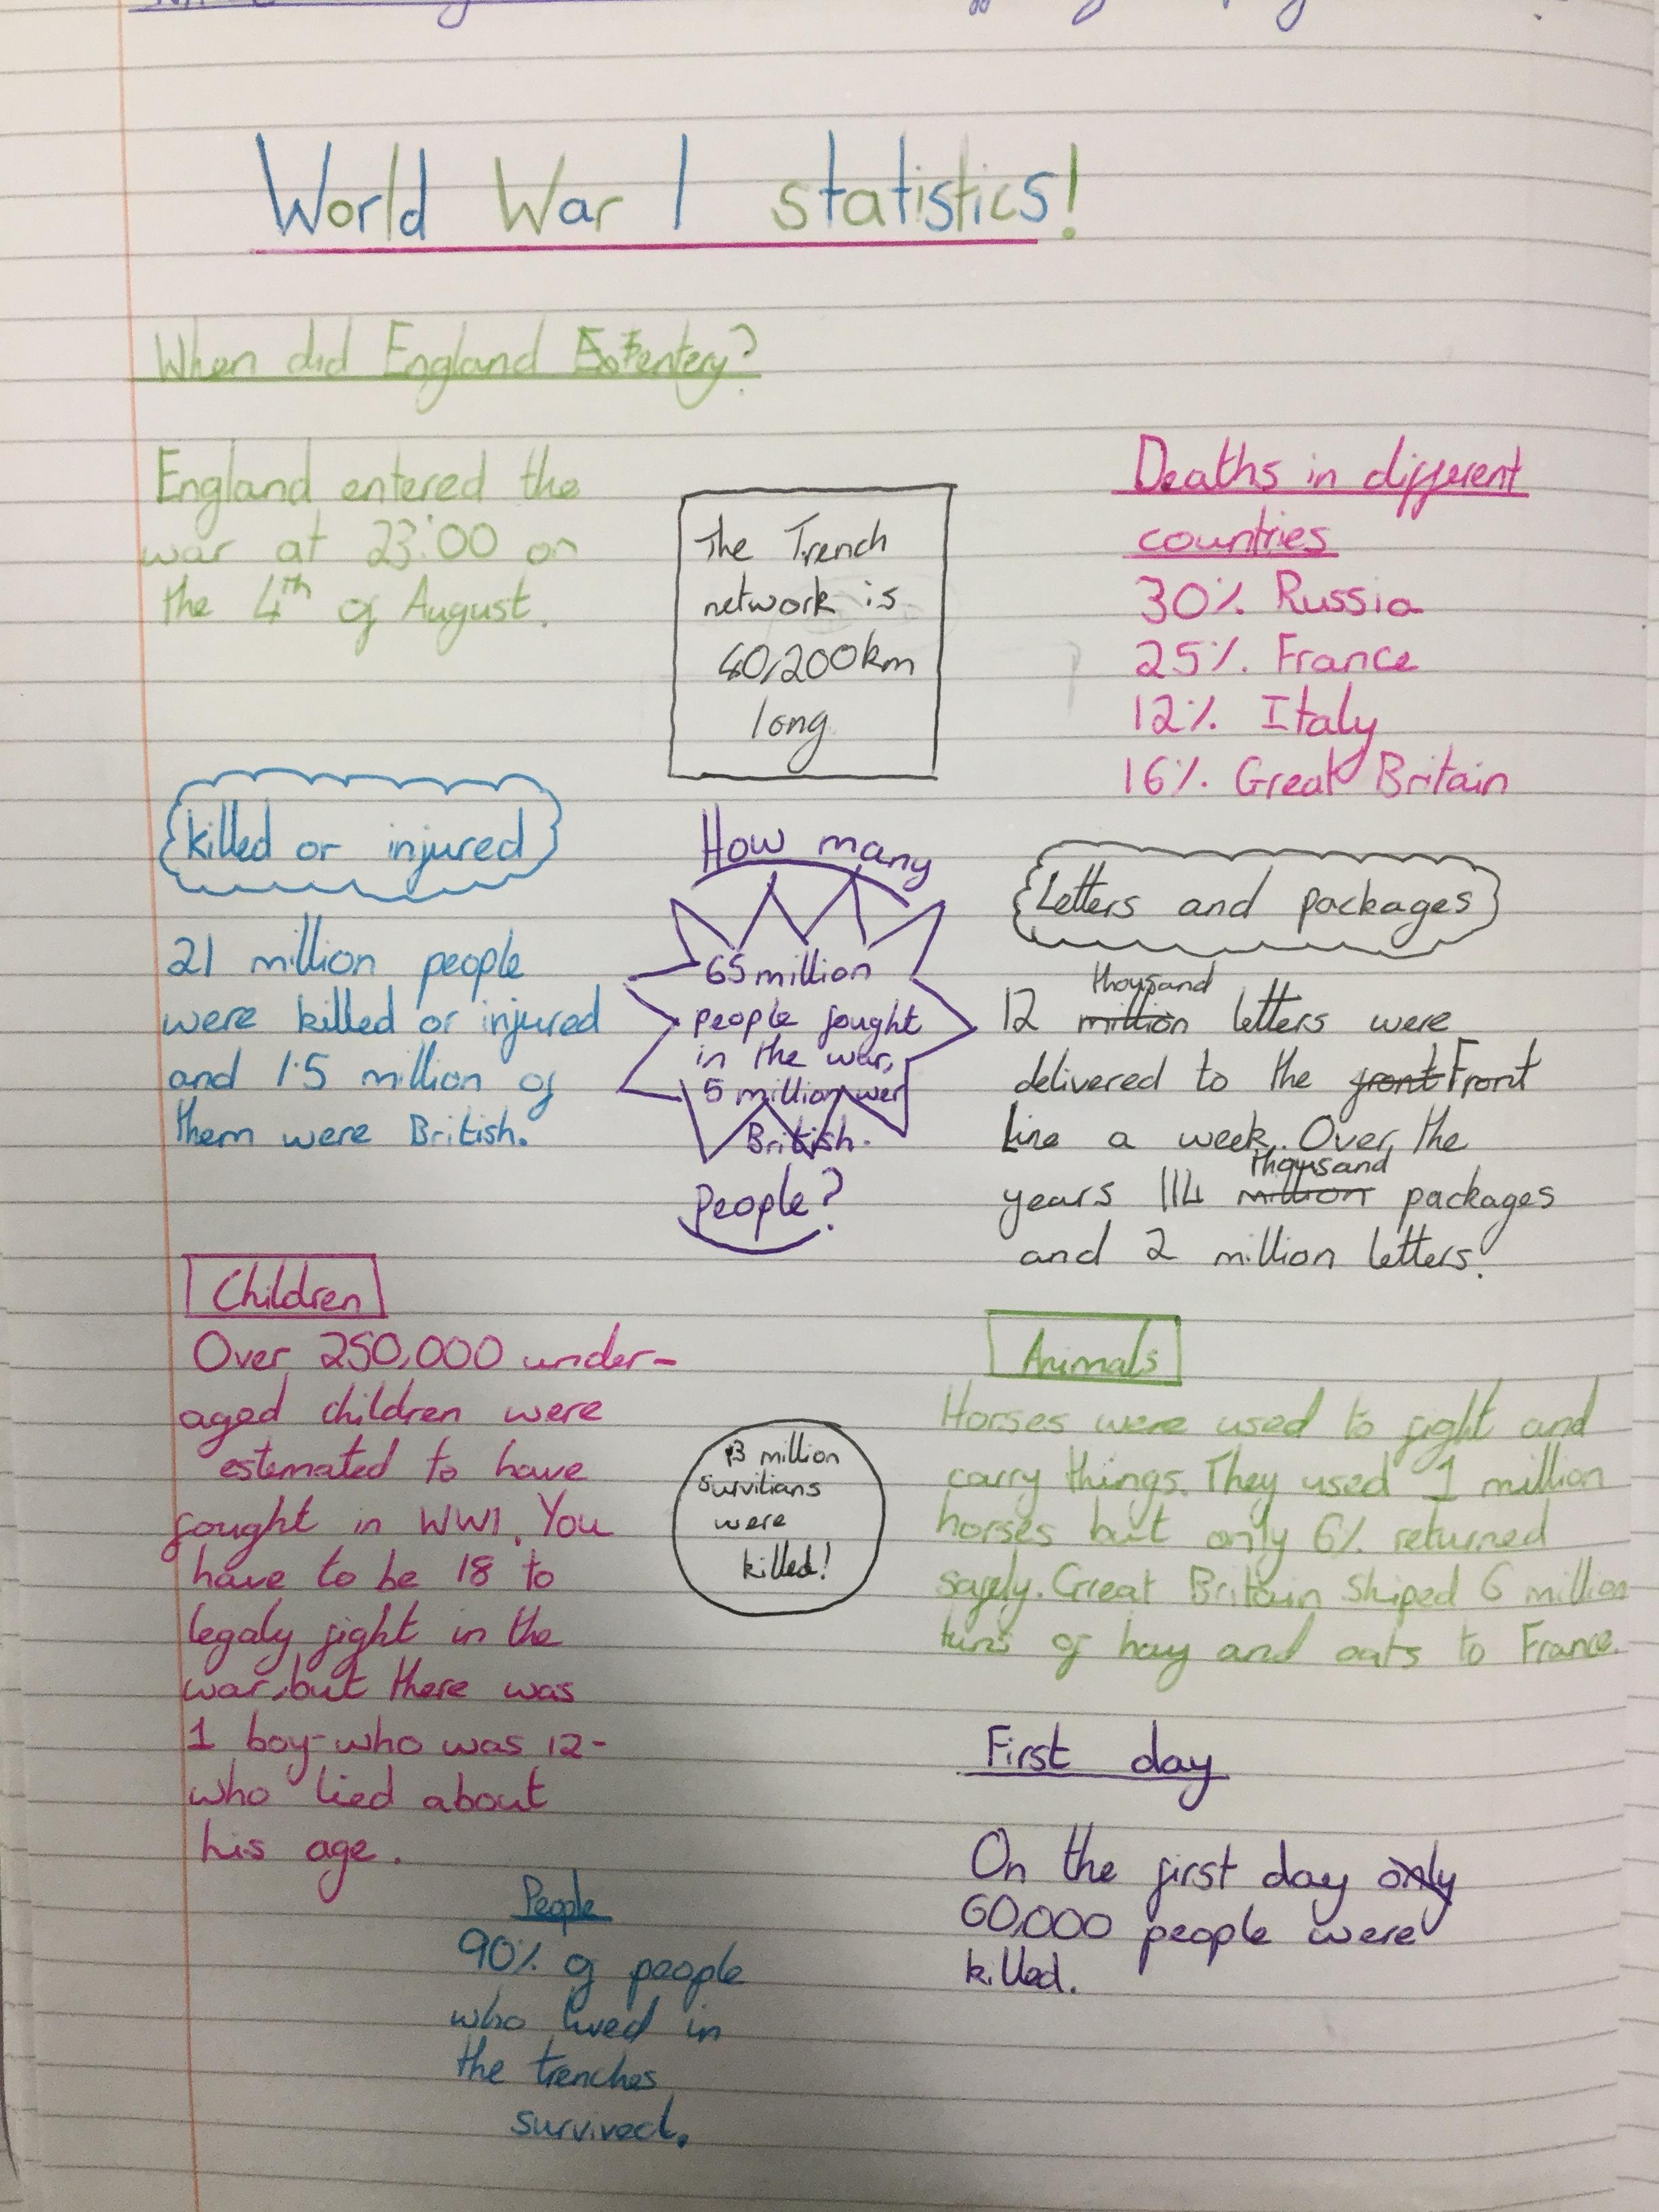 World War 1 statistics!
When did England entery?
England entered the
war at 23:00 on
the 4th of August.
The Trench
network is
40,200km
long
Deaths in different
countries
30% Russia
25% France
12% Italy
16% Great Britain
killed or injured
21 million people
were killed or injured
and 1.5 million of
them were British.
How many
65 million
people fought
in the war,
5 million wer
British.
People?
Letters and packages
thousand
12 million letters were
delivered to the front Front
Line a week. Over the
thousand
years 114 million packages
and 2 million letters.
Children
Over 250,000 under-
aged children were
estemated to have
fought in WW1. You
have to be 18 to
legaly fight in the
war, but there was
1 boy-who was 12-
who lied about
his age.
3 million
survilians
were
killed!
Animals
Horses were used to fight and
carry things. They used 1 million
horses but only 6% returned
safely. Great Britain Shiped 6 million
tuns of hay and oats to France.
First day
On the first day only
60,000 people were
killed.
People
90% of people
who lived in
the trenches
survived.